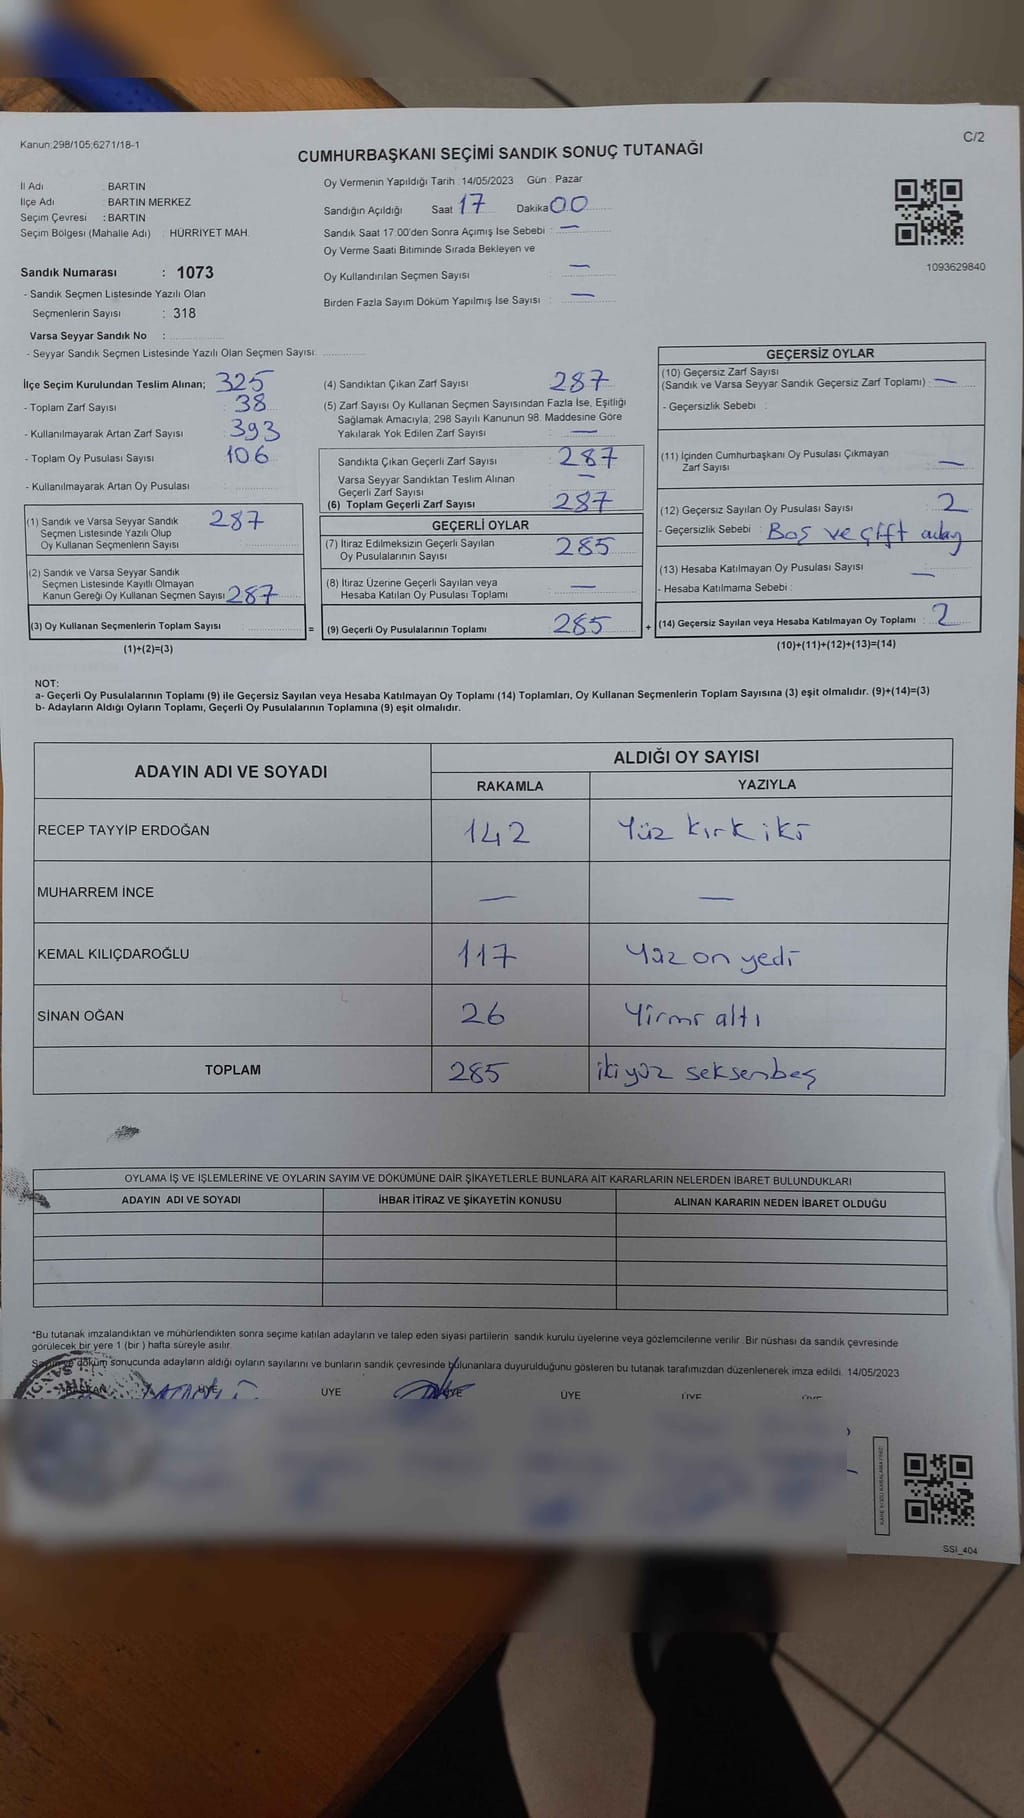 Kanun:298/105;6271/18-1
C/2
CUMHURBAŞKANI SEÇİMİ SANDIK SONUÇ TUTANAĞI
İl Adı : BARTIN
İlçe Adı : BARTIN MERKEZ
Seçim Çevresi : BARTIN
Seçim Bölgesi (Mahalle Adı) : HÜRRİYET MAH.
Oy Vermenin Yapıldığı Tarih : 14/05/2023 Gün : Pazar
Sandığın Açıldığı Saat 17 Dakika 00
Sandık Saat 17:00'den Sonra Açımış İse Sebebi : —
Oy Verme Saati Bitiminde Sırada Bekleyen ve
Oy Kullandırılan Seçmen Sayısı : —
Birden Fazla Sayım Döküm Yapılmış İse Sayısı : —
1093629840
Sandık Numarası : 1073
- Sandık Seçmen Listesinde Yazılı Olan
Seçmenlerin Sayısı : 318
Varsa Seyyar Sandık No :
- Seyyar Sandık Seçmen Listesinde Yazılı Olan Seçmen Sayısı:
İlçe Seçim Kurulundan Teslim Alınan; 325
- Toplam Zarf Sayısı : 38
- Kullanılmayarak Artan Zarf Sayısı : 393
- Toplam Oy Pusulası Sayısı : 106
- Kullanılmayarak Artan Oy Pusulası
(1) Sandık ve Varsa Seyyar Sandık 287
Seçmen Listesinde Yazılı Olup
Oy Kullanan Seçmenlerin Sayısı
(2) Sandık ve Varsa Seyyar Sandık
Seçmen Listesinde Kayıtlı Olmayan
Kanun Gereği Oy Kullanan Seçmen Sayısı 287
(3) Oy Kullanan Seçmenlerin Toplam Sayısı
(1)+(2)=(3)
(4) Sandıktan Çıkan Zarf Sayısı 287
(5) Zarf Sayısı Oy Kullanan Seçmen Sayısından Fazla İse, Eşitliği
Sağlamak Amacıyla; 298 Sayılı Kanunun 98. Maddesine Göre
Yakılarak Yok Edilen Zarf Sayısı : —
Sandıkta Çıkan Geçerli Zarf Sayısı : 287
Varsa Seyyar Sandıktan Teslim Alınan —
Geçerli Zarf Sayısı
(6) Toplam Geçerli Zarf Sayısı : 287
GEÇERLİ OYLAR
(7) İtiraz Edilmeksizin Geçerli Sayılan
Oy Pusulalarının Sayısı : 285
(8) İtiraz Üzerine Geçerli Sayılan veya
Hesaba Katılan Oy Pusulası Toplamı : —
= (9) Geçerli Oy Pusulalarının Toplamı : 285
GEÇERSİZ OYLAR
(10) Geçersiz Zarf Sayısı
(Sandık ve Varsa Seyyar Sandık Geçersiz Zarf Toplamı) : —
- Geçersizlik Sebebi :
(11) İçinden Cumhurbaşkanı Oy Pusulası Çıkmayan
Zarf Sayısı —
(12) Geçersiz Sayılan Oy Pusulası Sayısı : 2
- Geçersizlik Sebebi : Boş ve çift aday
(13) Hesaba Katılmayan Oy Pusulası Sayısı : —
- Hesaba Katılmama Sebebi :
+ (14) Geçersiz Sayılan veya Hesaba Katılmayan Oy Toplamı : 2
(10)+(11)+(12)+(13)=(14)
NOT:
a- Geçerli Oy Pusulalarının Toplamı (9) ile Geçersiz Sayılan veya Hesaba Katılmayan Oy Toplamı (14) Toplamları, Oy Kullanan Seçmenlerin Toplam Sayısına (3) eşit olmalıdır. (9)+(14)=(3)
b- Adayların Aldığı Oyların Toplamı, Geçerli Oy Pusulalarının Toplamına (9) eşit olmalıdır.
ADAYIN ADI VE SOYADI ALDIĞI OY SAYISI
RAKAMLA YAZIYLA
RECEP TAYYİP ERDOĞAN 142 Yüz kırk iki
MUHARREM İNCE — —
KEMAL KILIÇDAROĞLU 117 Yüz on yedi
SİNAN OĞAN 26 Yirmi altı
TOPLAM 285 iki yüz seksenbeş
OYLAMA İŞ VE İŞLEMLERİNE VE OYLARIN SAYIM VE DÖKÜMÜNE DAİR ŞİKAYETLERLE BUNLARA AİT KARARLARIN NELERDEN İBARET BULUNDUKLARI
ADAYIN ADI VE SOYADI İHBAR İTİRAZ VE ŞİKAYETİN KONUSU ALINAN KARARIN NEDEN İBARET OLDUĞU
*Bu tutanak imzalandıktan ve mühürlendikten sonra seçime katılan adayların ve talep eden siyasi partilerin sandık kurulu üyelerine veya gözlemcilerine verilir. Bir nüshası da sandık çevresinde
görülecek bir yere 1 (bir ) hafta süreyle asılır.
Sayım ve döküm sonucunda adayların aldığı oyların sayılarını ve bunların sandık çevresinde bulunanlara duyurulduğunu gösteren bu tutanak tarafımızdan düzenlenerek imza edildi. 14/05/2023
BAŞKAN ÜYE ÜYE ÜYE ÜYE ÜYE ÜYE
SSI_404